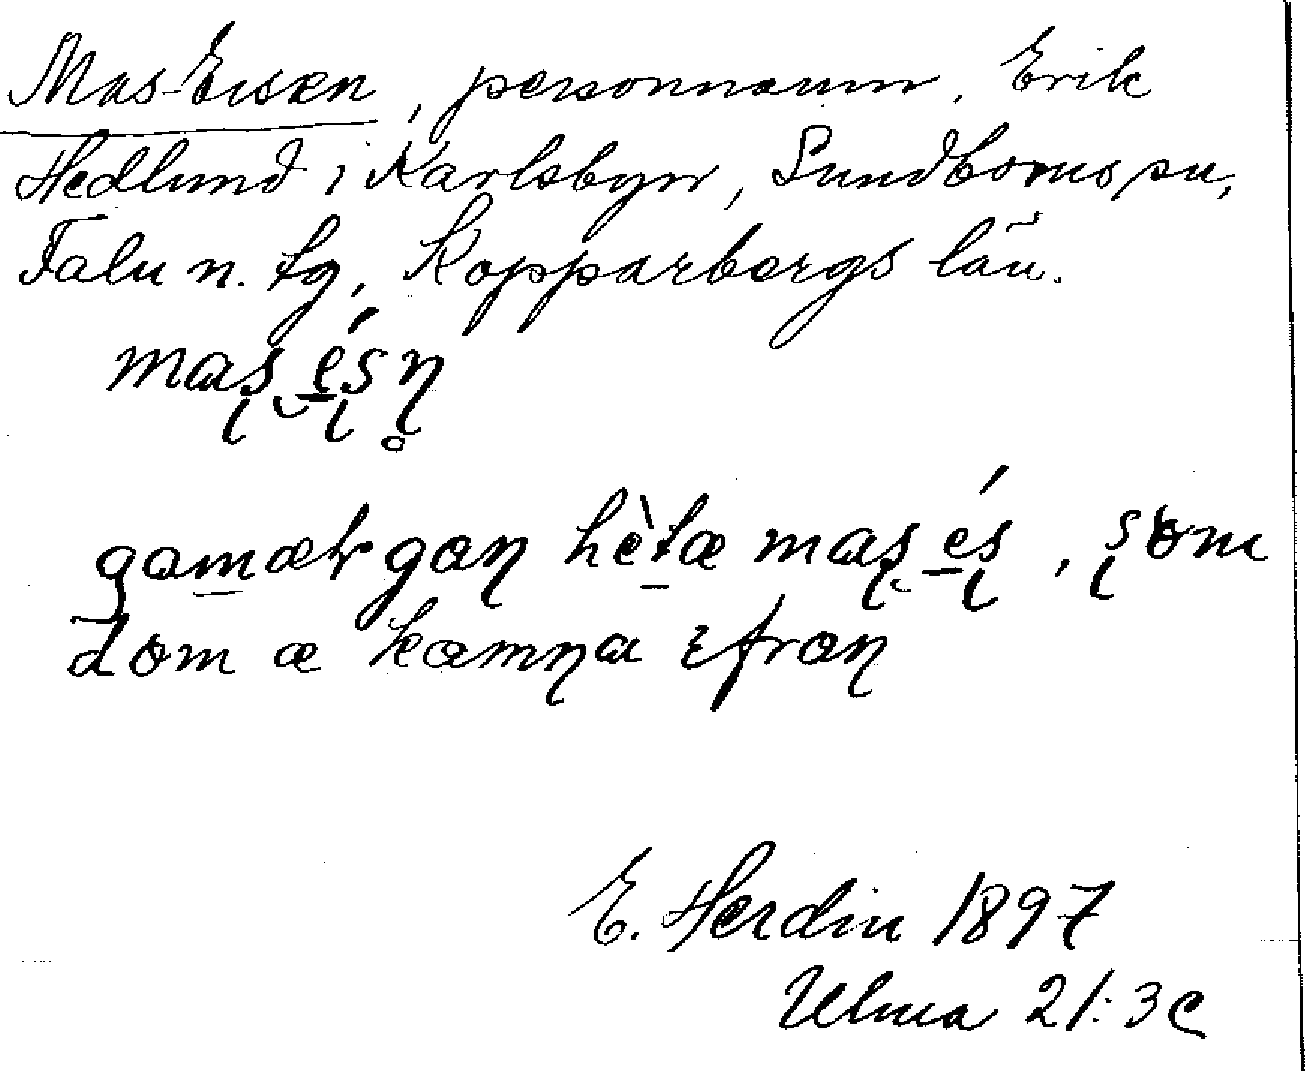 Mas-Eisen, personnamn. Erik
Hedlund i Karlsbyn, Sundborns sn,
Falu n. tg, Kopparbergs län.
mas esn
gamalr gan hètæ mas es, som
dom æ kamna ifran
E. Herdin 1897
Ulma 21:3c